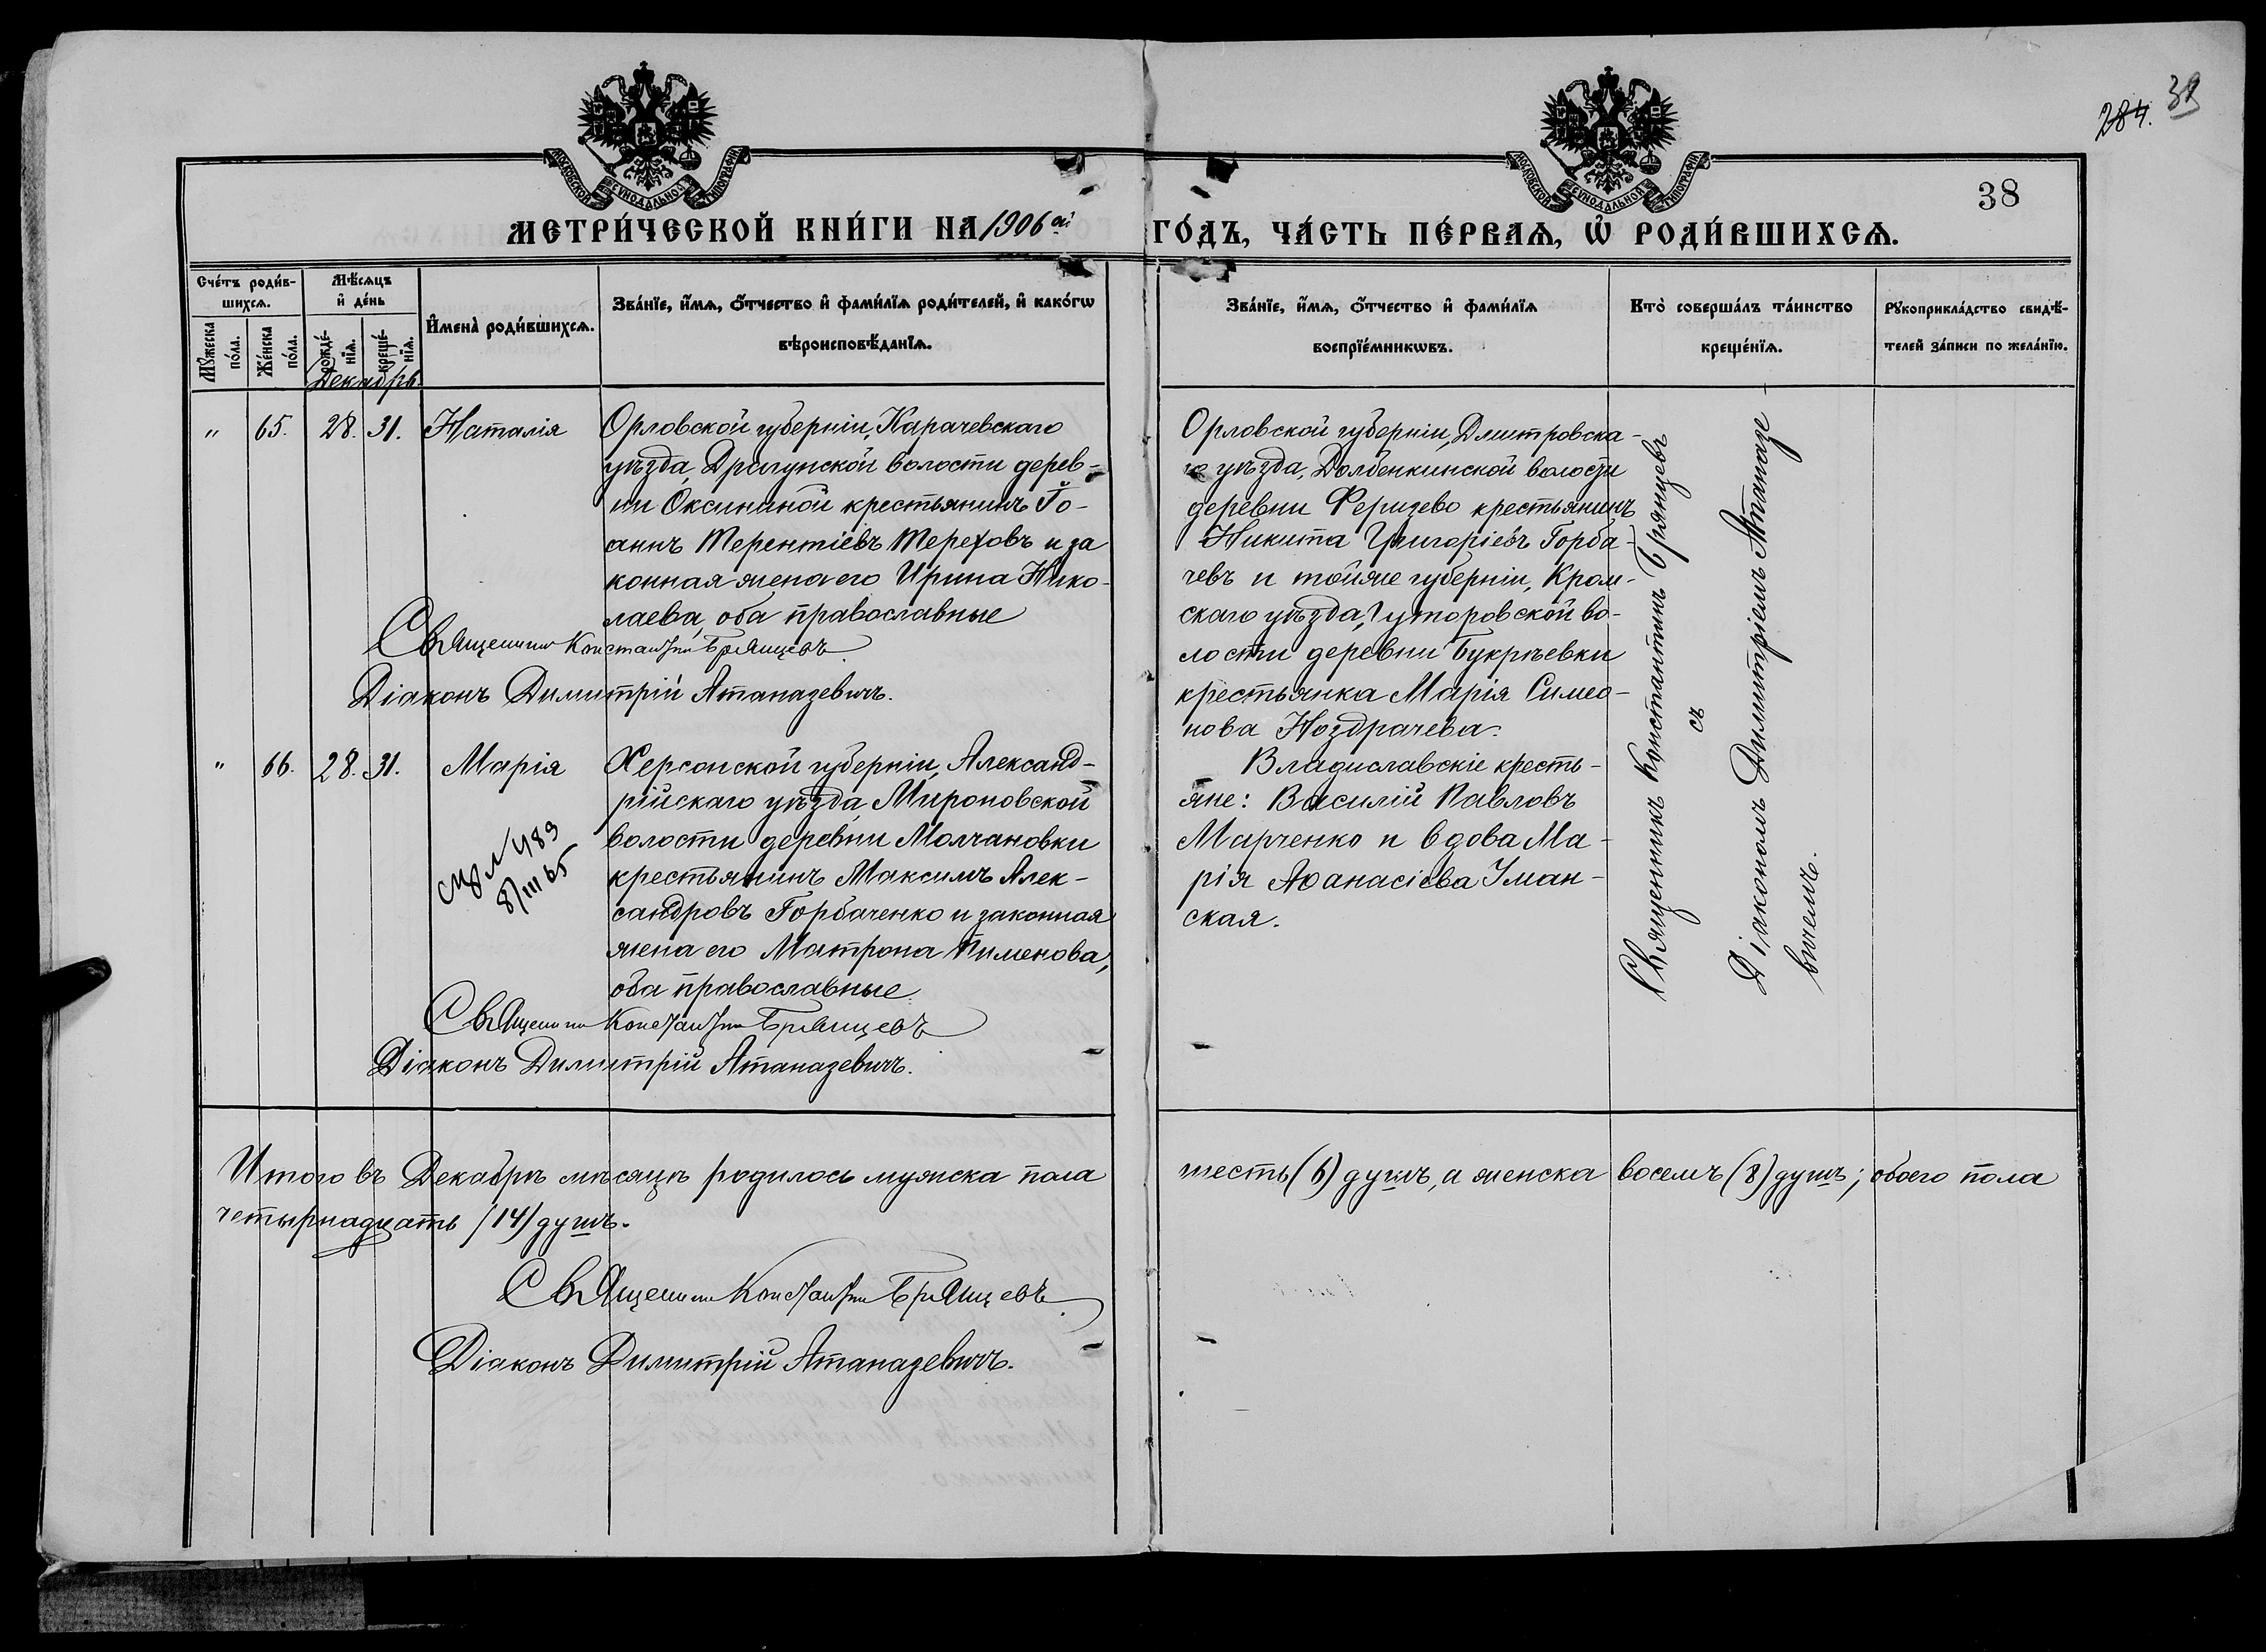 284. 39
МОСКОВСКОЙ СУНОДАЛЬНОЙ ТИПОГРАФІИ
МОСКОВСКОЙ СУНОДАЛЬНОЙ ТИПОГРАФІИ
38
МЕТРИ́ЧЕСКОЙ КНИ́ГИ НА 1906 ой ГО́ДЪ, ЧА́СТЬ ПЕ́РВАѦ, Ѡ РОДИ́ВШИХСѦ.
Сче́тъ роди́в-
шихсѧ.
Мꙋжеска по́ла.
Же́нска по́ла.
Мѣ́сѧцъ
и де́нь
рожде́-
нїѧ.
креще́-
нїѧ.
Имена̀ роди́вшихсѧ.
Зва́нїе, и́мѧ, о́тчество и фами́лїѧ роди́телей, и како́гѡ
вѣроисповѣ́данїѧ.
Зва́нїе, и́мѧ, о́тчество и фами́лїѧ
воспрїе́мникѡвъ.
Кто̀ соверша́лъ та́инство
креще́нїѧ.
Рꙋкоприкла́дство свидѣ́-
телей за́писи по жела́нїю.
Декабрь
" 65. 28. 31. Наталія
Орловской губерніи, Карачевскаго
уѣзда, Драгунской волости дерев-
ни Оксининой крестьянинъ Іо-
аннъ Терентіевъ Тереховъ и за
конная жена его Ирина Нико-
лаева, оба православные
Священникъ Константинъ Брянцевъ
Діаконъ Димитрій Атаназевичъ.
Орловской губерніи, Дмитровска-
го уѣзда, Долбенкинской волости
деревни Феризево крестьянинъ
Никита Григоріевъ Горба-
чевъ и тойже губерніи, Кром-
скаго уѣзда, Гуторовской во-
лости деревни Букрѣевки
крестьянка Марія Симео-
нова Ноздрачева.
Священникъ Константинъ Брянцевъ
съ
Діакономъ Димитріемъ Атаназе-
вичемъ.
" 66. 28. 31. Марія
Херсонской губерніи, Александ-
рійскаго уѣзда, Мироновской
волости деревни Молчановки
крестьянинъ Максимъ Алек-
сандровъ Горбаченко и законная
жена его Матрона Пименова,
оба православные
489
8/III 65
Священникъ Константинъ Брянцевъ
Діаконъ Димитрій Атаназевичъ.
Владиславскіе кресть-
яне: Василій Павловъ
Марченко и вдова Ма-
рія Аѳанасіева Уман-
ская.
Итого въ Декабрѣ мѣсяцѣ родилось мужска пола шесть (6) душъ, а женска восемъ (8) душъ; обоего пола
четырнадцать (14) душъ.
Священникъ Константинъ Брянцевъ
Діаконъ Димитрій Атаназевичъ.